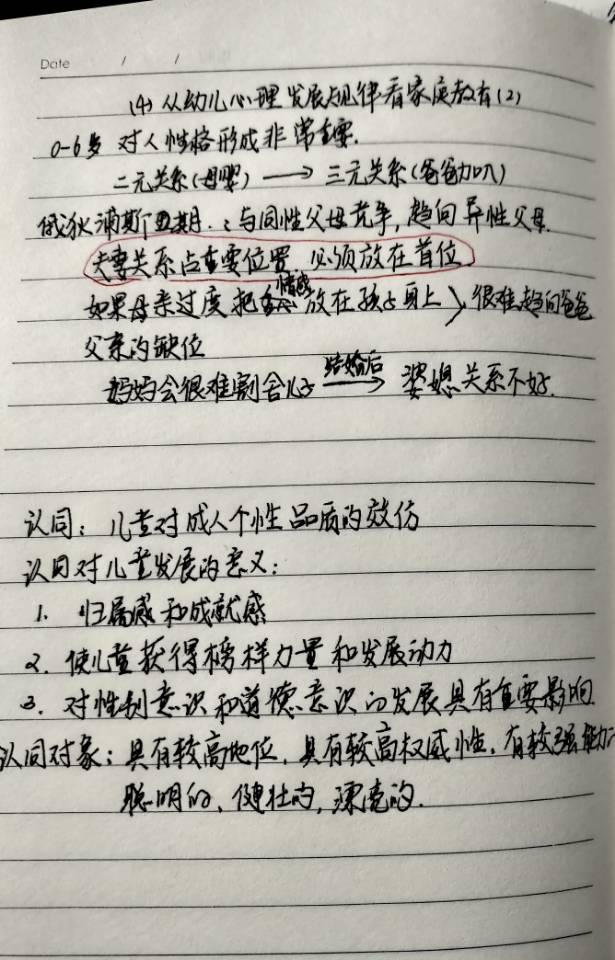 Date / /
(4) 从幼儿心理发展规律看家庭教育(2)
0-6岁 对人性格形成非常重要.
二元关系(母婴) → 三元关系(爸爸加入)
俄狄浦斯期.：与同性父母竞争, 趋向异性父母.
夫妻关系占重要位置, 必须放在首位.
如果母亲过度把情感放在孩子身上 很难趋向爸爸
父亲的缺位
妈妈会很难割舍儿子 结婚后→ 婆媳关系不好.
认同：儿童对成人个性品质的效仿
认同对儿童发展的意义：
1. 归属感和成就感
2. 使儿童获得榜样力量和发展动力
3. 对性别意识和道德意识的发展具有重要影响.
认同对象：具有较高地位, 具有较高权威性, 有较强能力
聪明的、健壮的, 漂亮的.